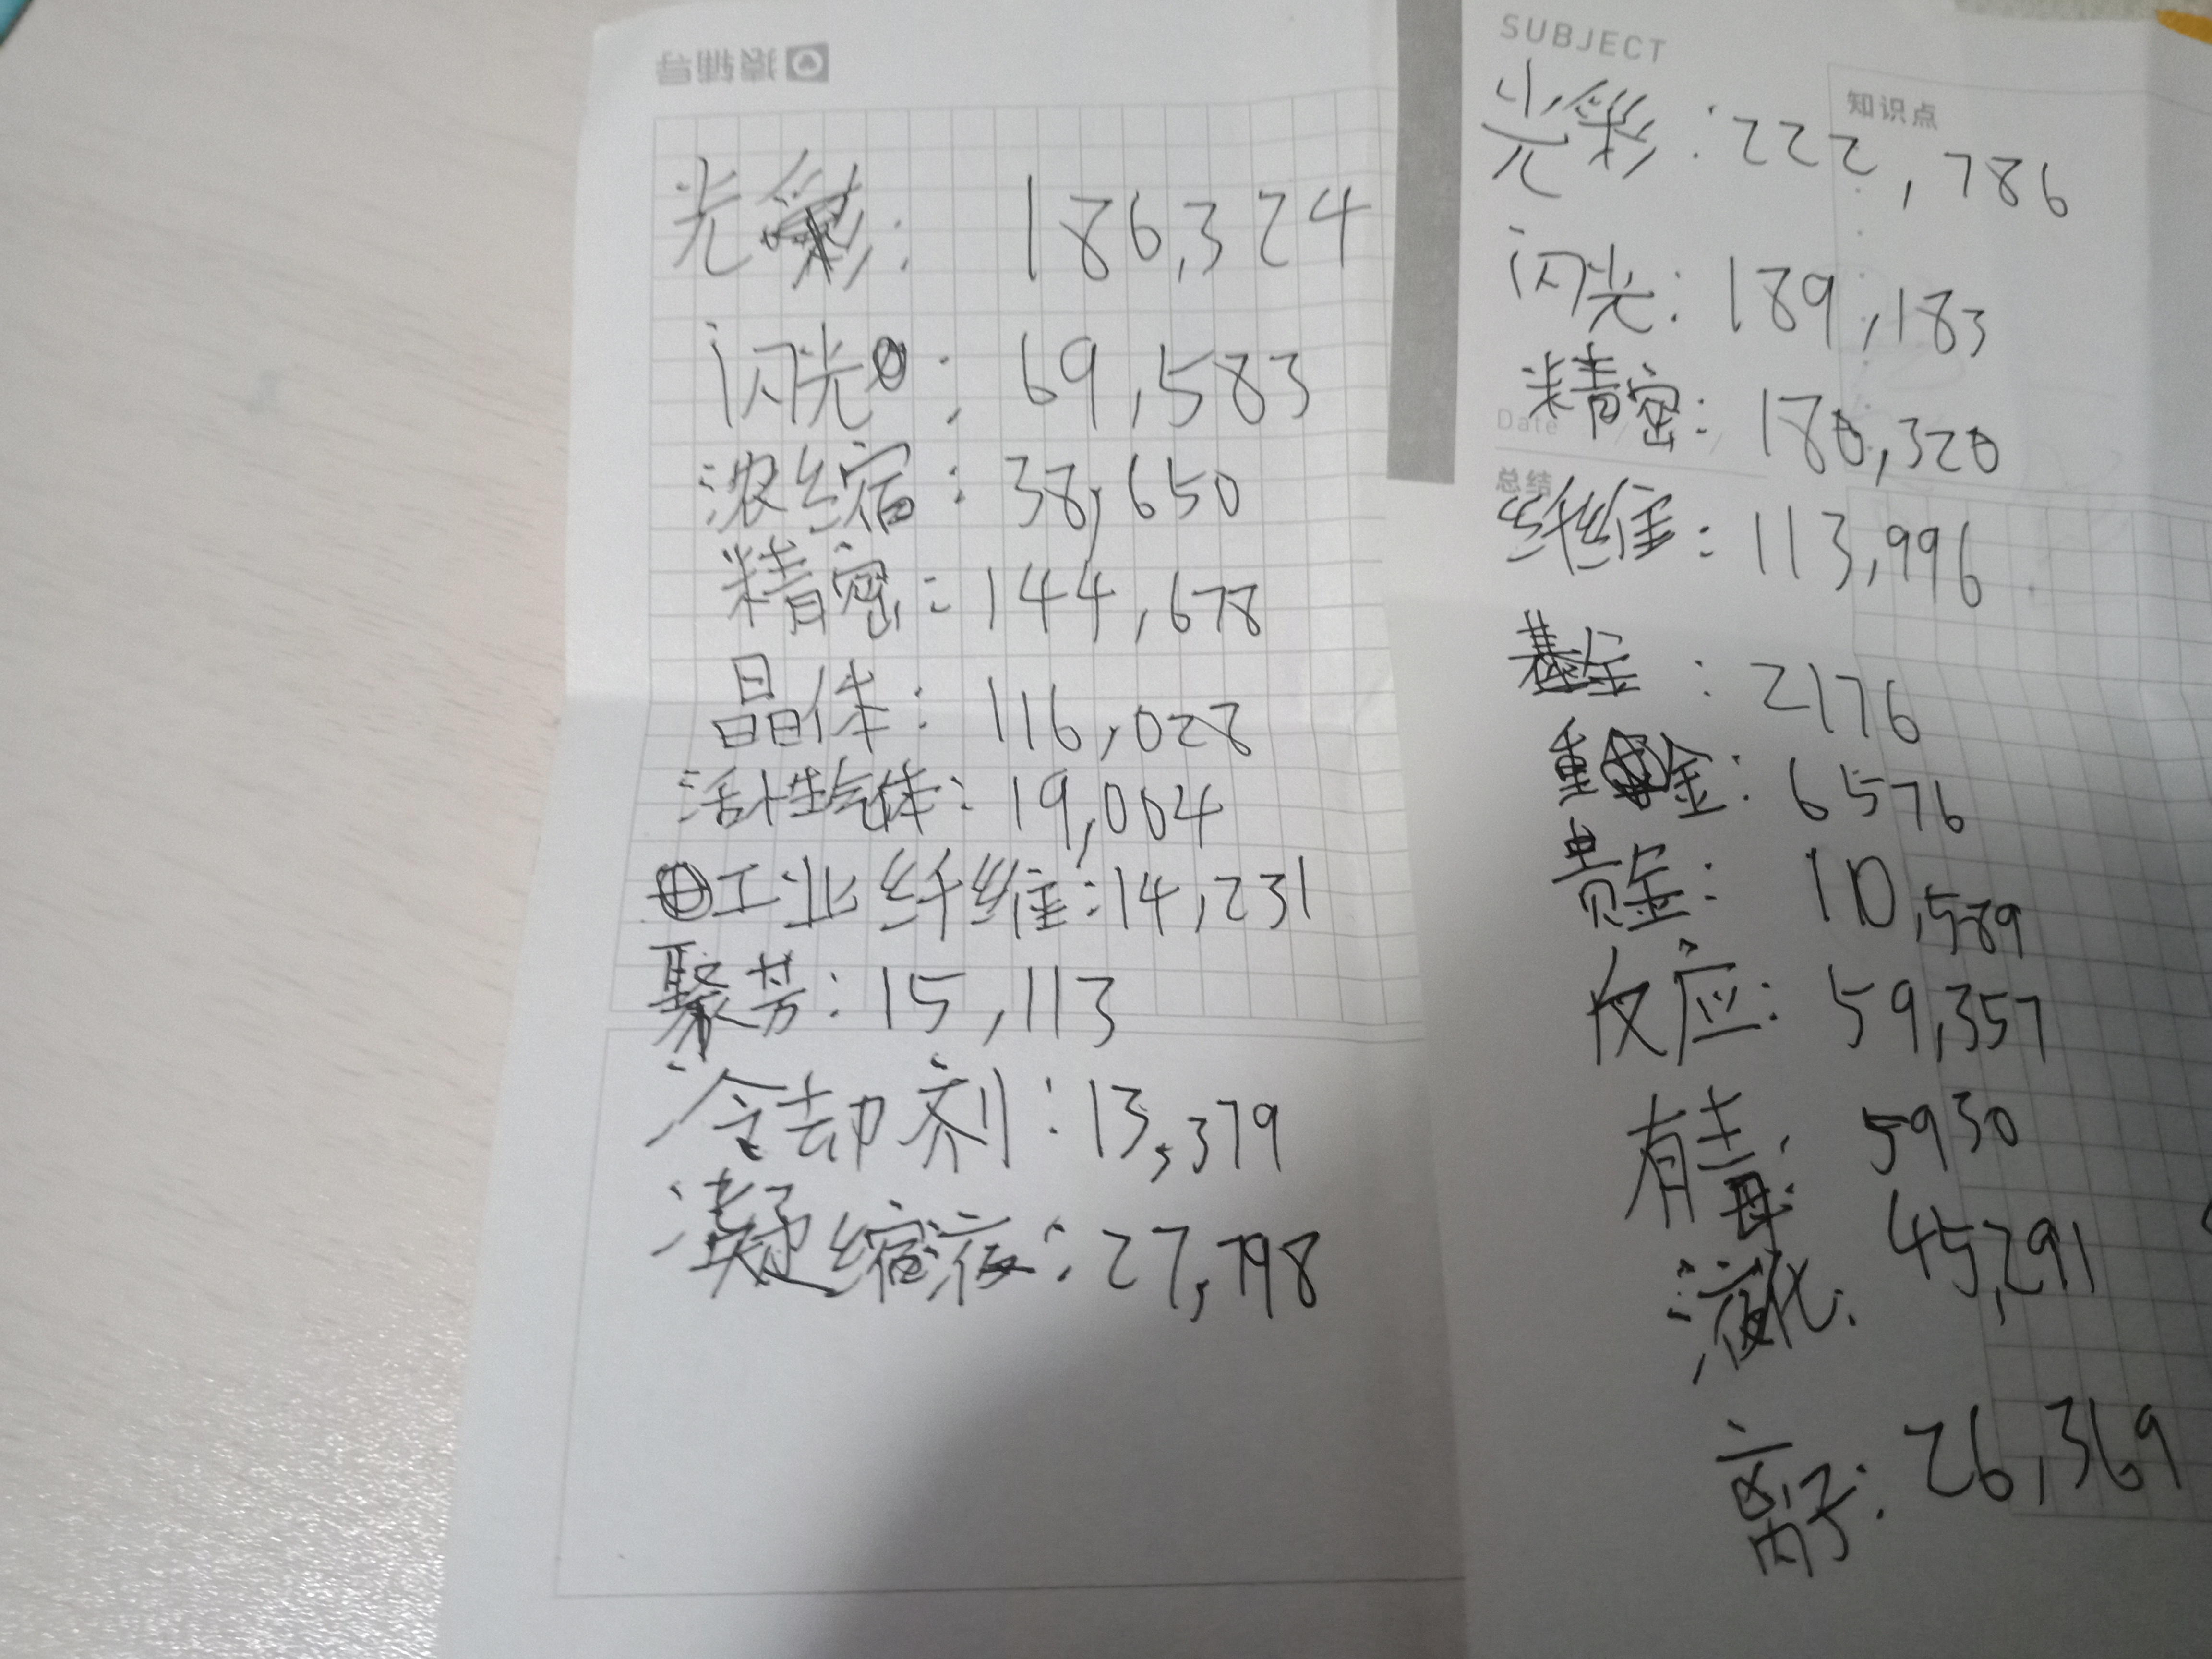 猿辅导
光彩: 186,324
闪光: 69,583
浓缩: 38,650
精密: 144,678
晶体: 116,028
活性气体: 19,004
工业纤维: 14,231
聚芳: 15,113
冷却剂: 13,379
凝缩液: 27,798
SUBJECT
知识点
光彩: 222,786
闪光: 189,183
精密: 180,320
Date
总结
纤维: 113,996
基金: 2176
重金: 6576
贵金: 10,589
反应: 59,357
有毒: 5930
液化: 45,291
离子: 26,369